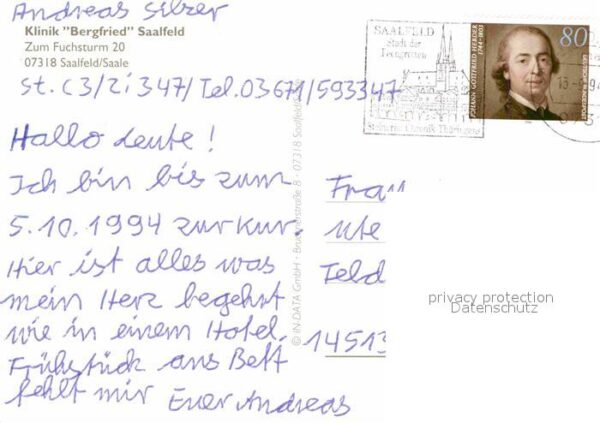 Andreas Silzer
Klinik "Bergfried" Saalfeld
Zum Fuchsturm 20
07318 Saalfeld/Saale
St. C3/Zi347/Tel.03671/593347
Hallo Leute!
Ich bin bis zum
5.10.1994 zur Kur.
Hier ist alles was
mein Herz begehrt
wie in einem Hotel.
Frühstück ans Bett
fehlt mir Euer Andreas
© IN-DATA GmbH · 8 · 07318 Saalfeld
SAALFELD
Stadt der
Feengrotten
Steinerne Chronik Thüringens
80
JOHANN GOTTFRIED HERDER
1744-1803
DEUTSCHE BUNDESPOST
Frau
Ute
Feld
14513
privacy protection
Datenschutz